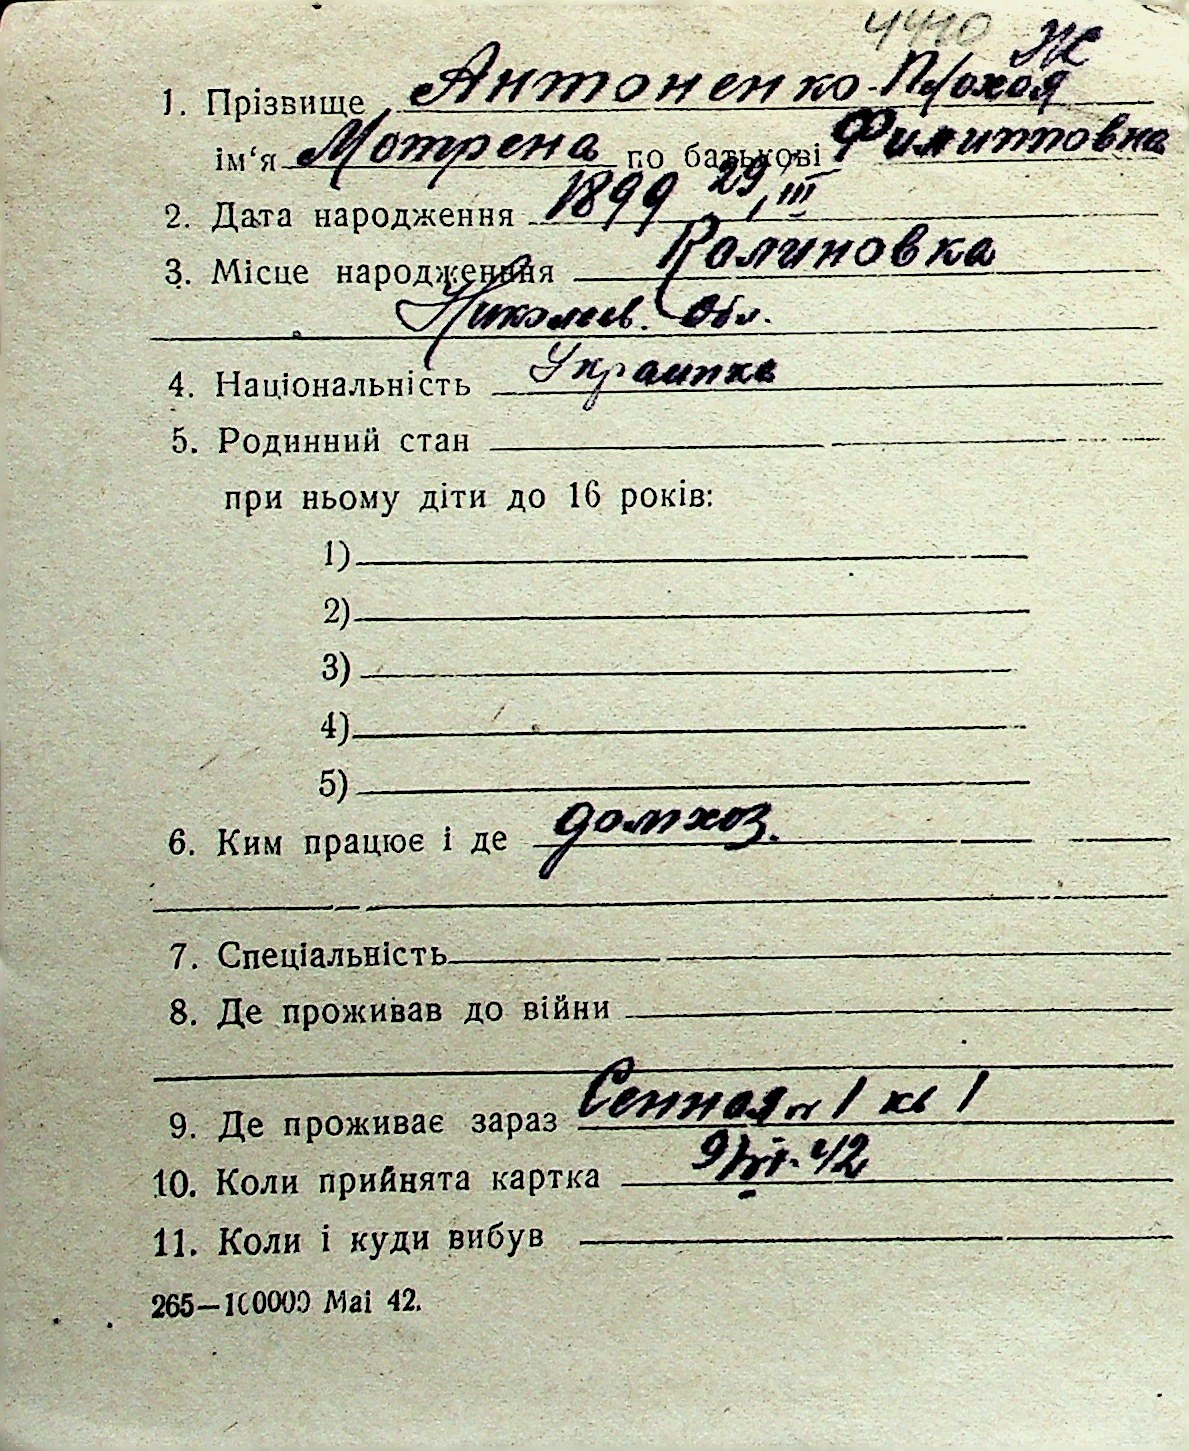 4440 Ж
1. Прізвище Антоненко-Плохоя
ім‘я Мотрена по батькові Филипповна
2. Дата народження 1899 29/III
3. Місце народження Калиновка
Николаев. Обл.
4. Національність Украинка
5. Родинний стан
при ньому діти до 16 років:
1)
2)
3)
4)
5)
6. Ким працює і де домхоз.
7. Спеціальність
8. Де проживав до війни
9. Де проживає зараз Сенная № 1 кв 1
10. Коли прийнята картка 42
11. Коли і куди вибув
265—100000 Mai 42.